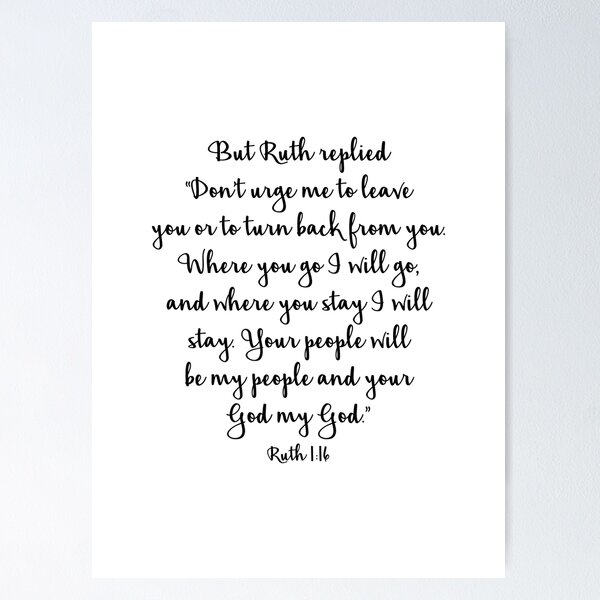 But Ruth replied
"Don't urge me to leave
you or to turn back from you.
Where you go I will go,
and where you stay I will
stay. Your people will
be my people and your
God my God."
Ruth 1:16